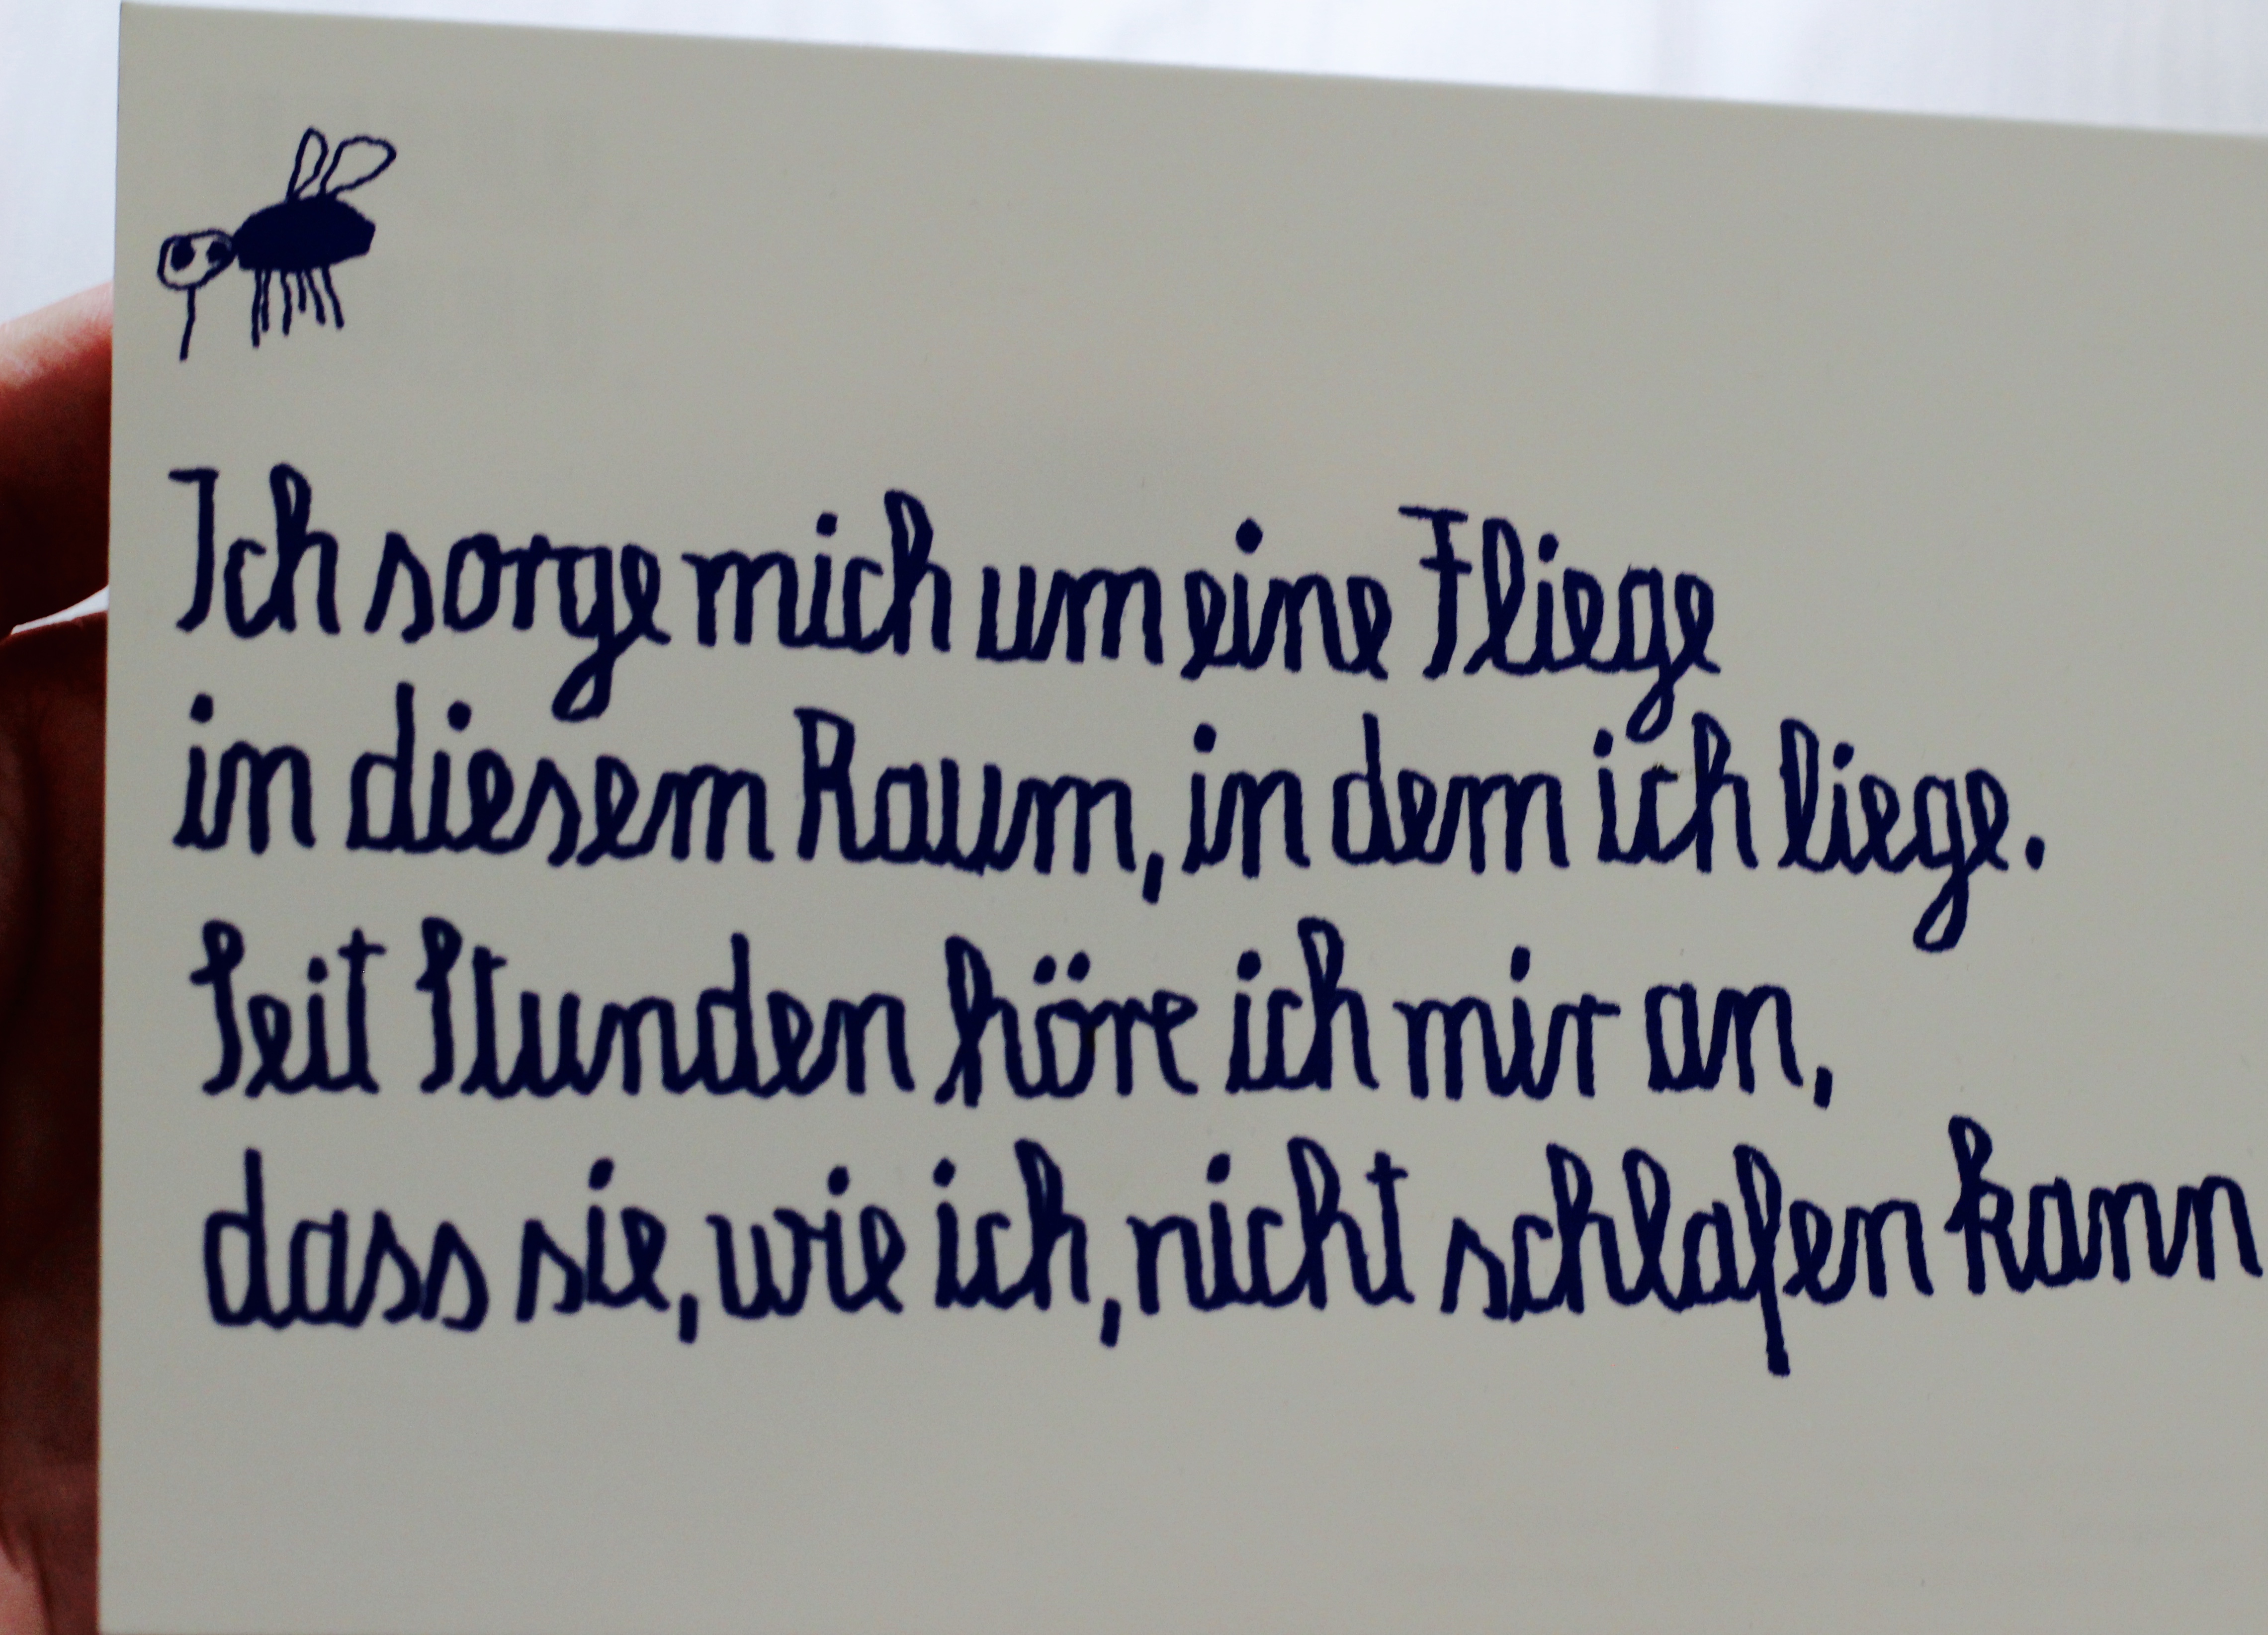 Ich sorge mich um eine Fliege
in diesem Raum, in dem ich liege.
Seit Stunden höre ich mir an,
dass sie, wie ich, nicht schlafen kann